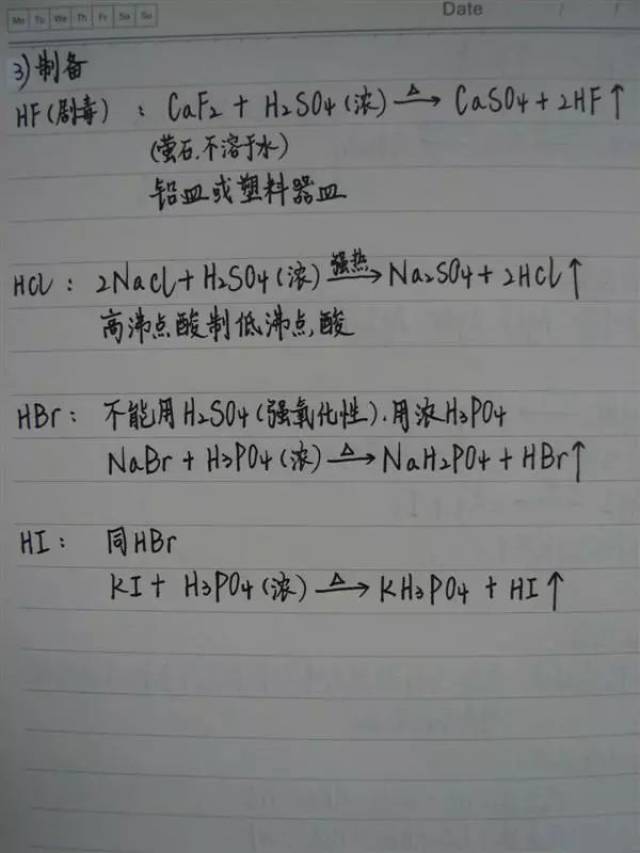 Mo Tu We Th Fr Sa Su
Date / /
3) 制备
HF(剧毒) : CaF₂ + H₂SO₄(浓) —△→ CaSO₄ + 2HF↑
(萤石.不溶于水)
铅皿或塑料器皿
HCl : 2NaCl + H₂SO₄(浓) —强热→ Na₂SO₄ + 2HCl↑
高沸点酸制低沸点酸
HBr : 不能用H₂SO₄(强氧化性).用浓H₃PO₄
NaBr + H₃PO₄(浓) —△→ NaH₂PO₄ + HBr↑
HI : 同HBr
KI + H₃PO₄(浓) —△→ KH₃PO₄ + HI↑